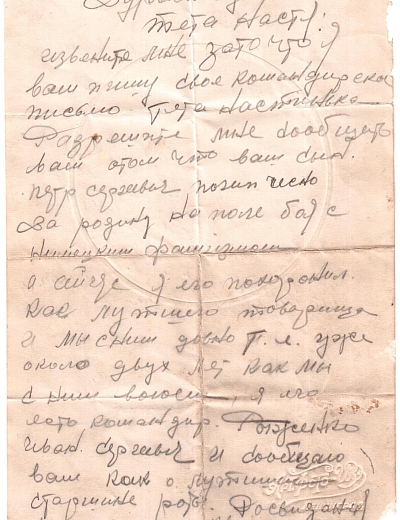 тета Настя!
извените мне зато что я
вам пишу свое командирское
письмо тета Настинька
Разрешите мне сообщить
вам отом что ваш сын.
петр сергевич погиб чесно
За родину на поле боя с
немецким фашизмом
а я его похоронил.
как лутшего товарища
и мы сним довно т. е. уже
около двух лет как мы
с ним воюем, я его
есть командир.
Иван. сергевич и сообщаю
вам как о лутшим
старшине роты. Досвидания